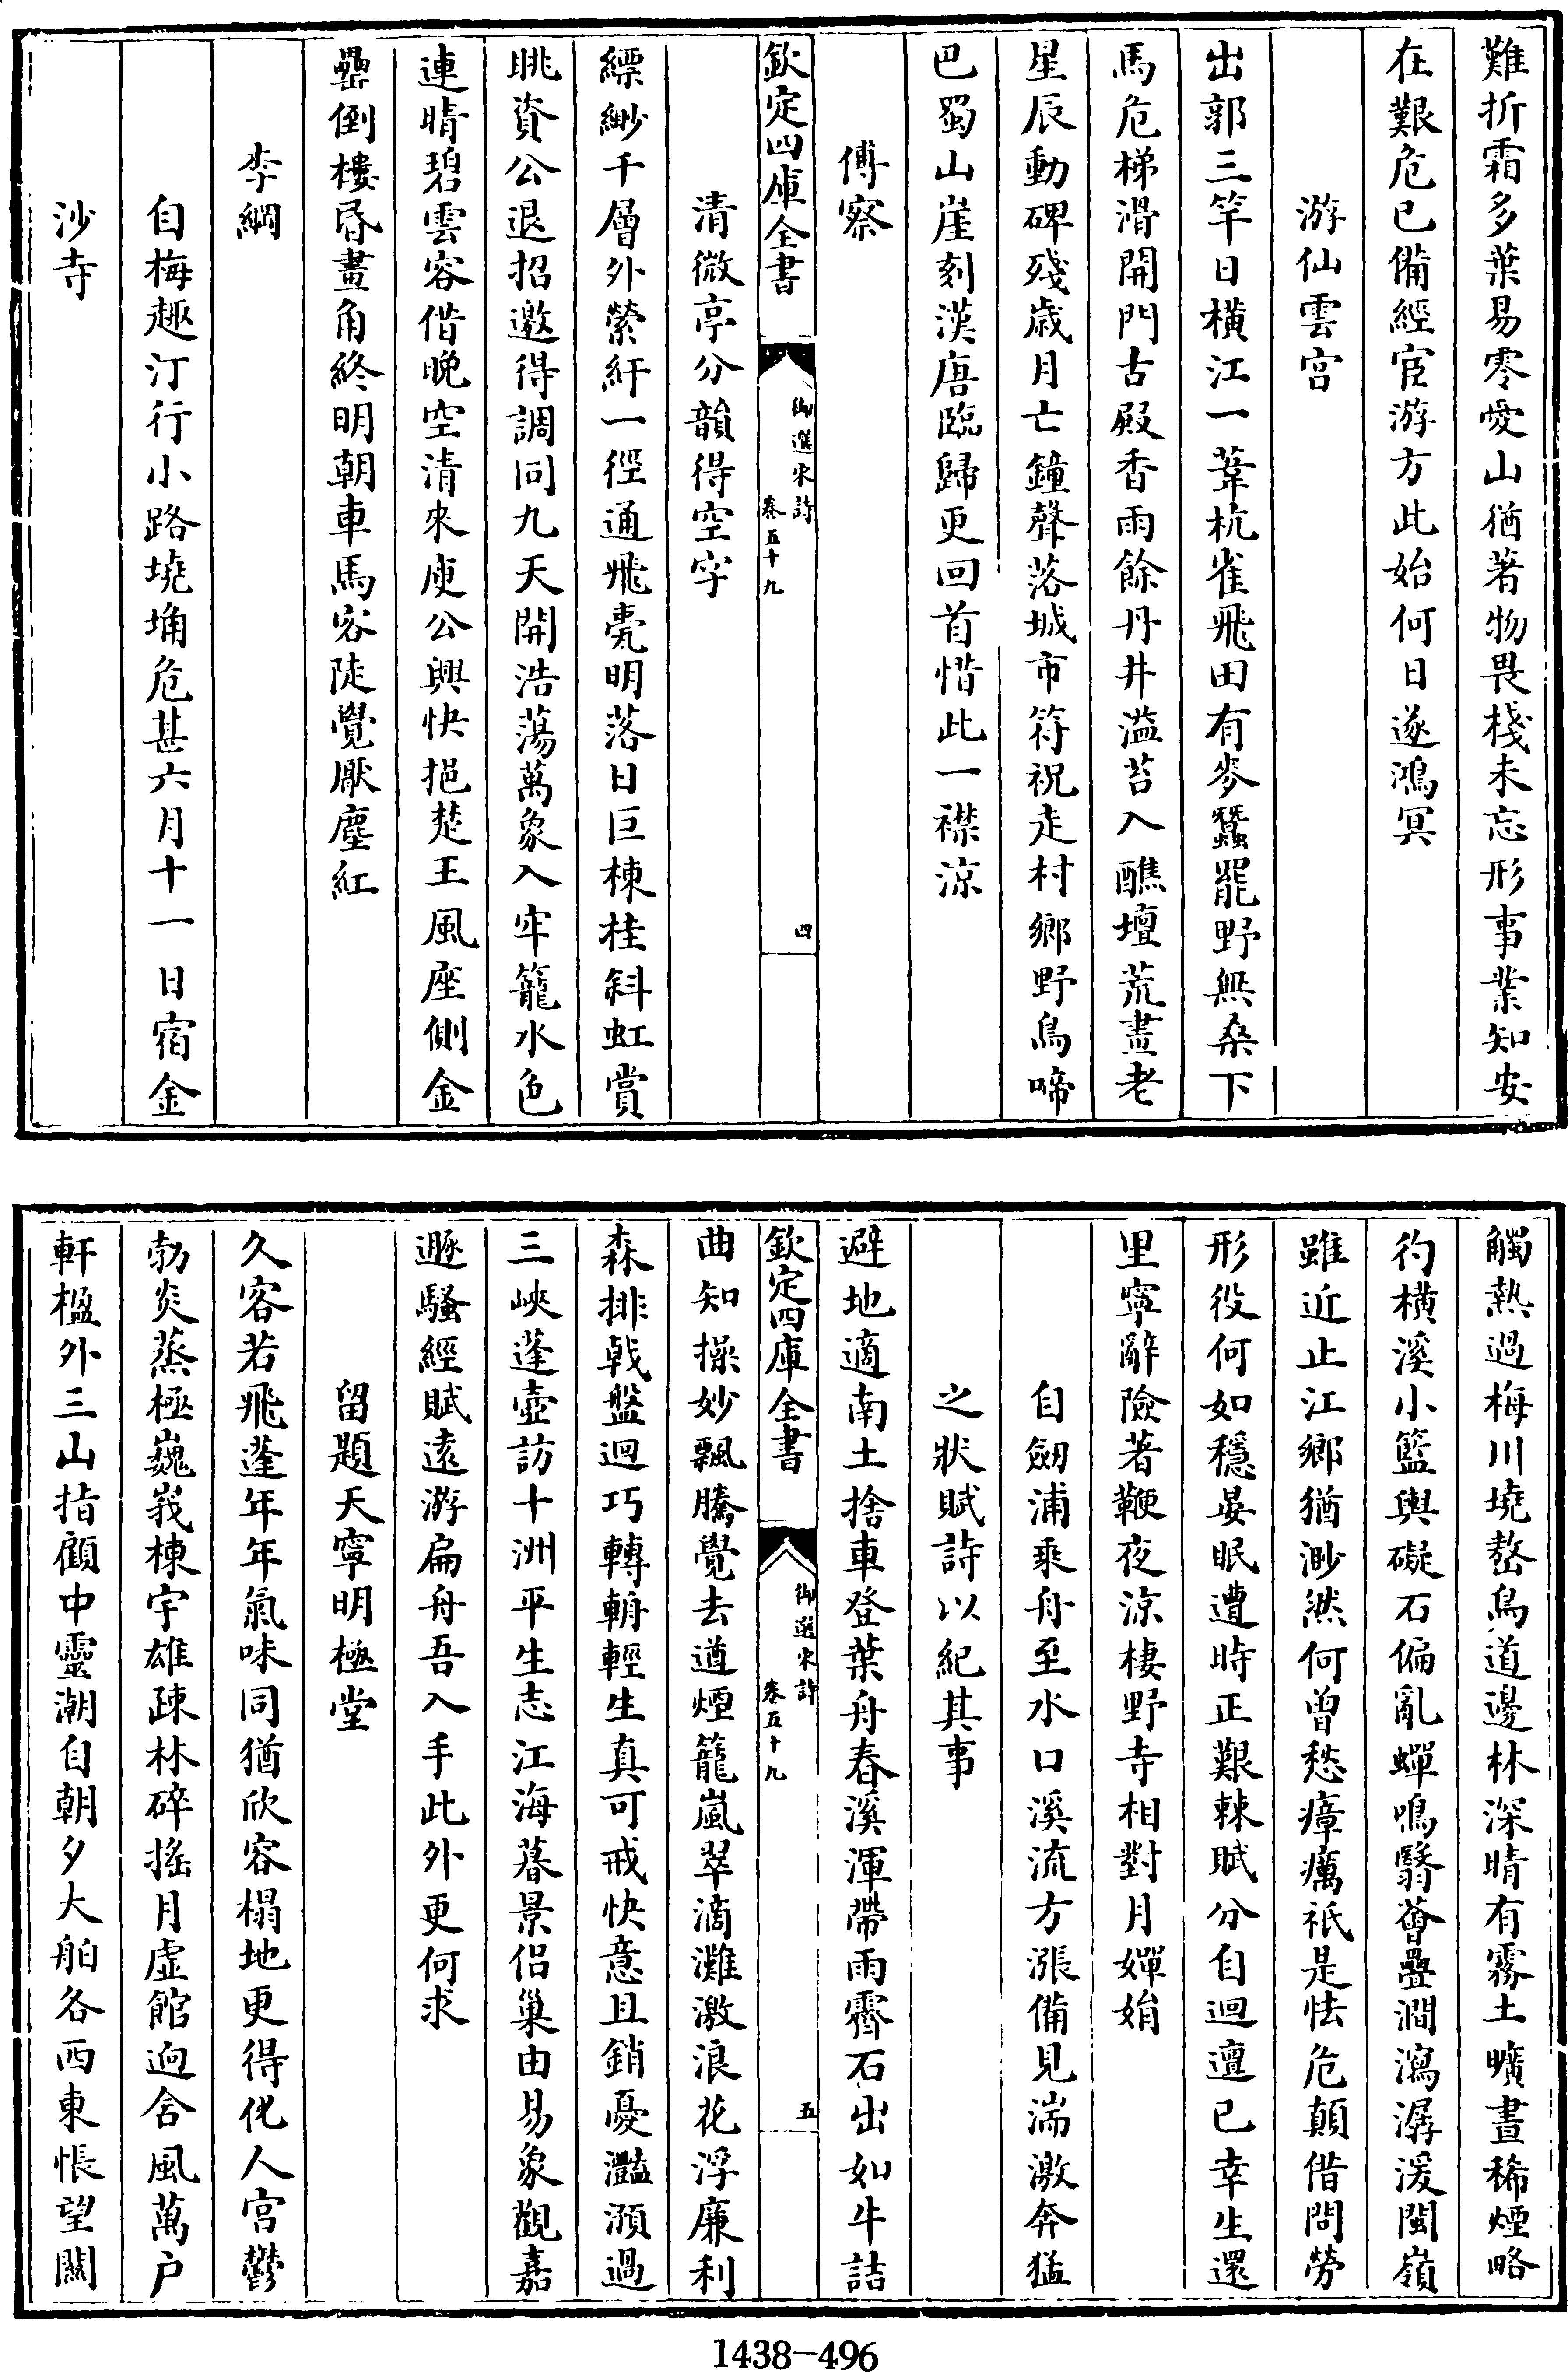 難折霜多葉易零愛山猶著物畏棧未忘形事業知安
在艱危已備經宦游方此始何日遂鴻冥
游仙雲宫
出郭三竿日横江一葦杭雀飛田有麥蠶罷野無桑下
馬危梯滑開門古殿香雨餘丹井溢苔入醮壇荒畫老
星辰動碑殘歲月亡鐘聲落城市符祝走村鄉野鳥啼
巴蜀山崖刻漢唐臨歸更回首惜此一襟涼
傅察
欽定四庫全書
御選宋詩
卷五十九
四
清微亭分韻得空字
縹緲千層外縈紆一徑通飛甍明落日巨棟挂斜虹賞
眺資公退招邀得調同九天開浩蕩萬象入牢籠水色
連晴碧雲容偕晚空清來庾公興快挹楚王風座側金
罍倒樓昏畫角終明朝車馬客陡覺厭塵紅
李綱
自梅趣汀行小路墝埆危甚六月十一日宿金
沙寺
觸熱過梅川墝嶅鳥道邊林深晴有霧土曠晝稀煙略
彴横溪小籃輿礙石偏亂蟬鳴翳薈疊澗瀉潺湲閩嶺
雖近止江鄉猶渺然何曾愁瘴癘祇是怯危顛借問勞
形役何如穩晏眠遭時正艱棘賦分自迴邅已幸生還
里寧辭險著鞭夜涼棲野寺相對月嬋娟
自劒浦乘舟至水口溪流方漲備見湍激奔猛
之狀賦詩以紀其事
避地適南土捨車登葉舟春溪渾帶雨霽石出如牛詰
欽定四庫全書
御選宋詩
卷五十九
五
曲知操妙飄騰覺去遒煙籠嵐翠滴灘激浪花浮廉利
森排戟盤迴巧轉輈輕生真可戒快意且銷憂灩澦過
三峽蓬壺訪十洲平生志江海暮景侣巢由易象觀嘉
遯騷經賦遠游扁舟吾入手此外更何求
留題天寧明極堂
久客若飛蓬年年氣味同猶欣容榻地更得化人宫鬱
勃炎蒸極巍峩棟宇雄疎林碎摇月虚館迥含風萬户
軒楹外三山指顧中靈潮自朝夕大舶各西東悵望關
1438-496